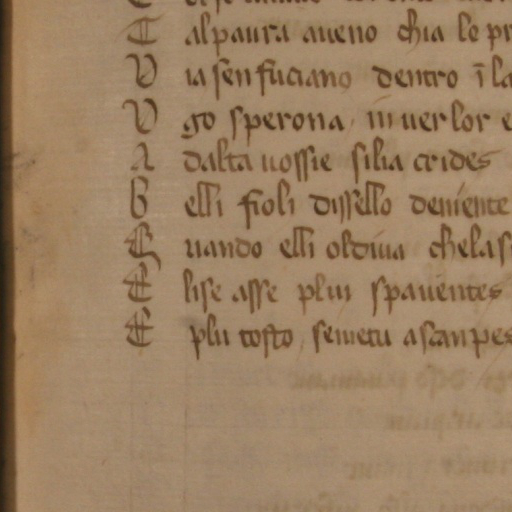 T al paura aueno chia le pr
V ia sen fuciano dentro ĩ la
V go sperona in uer lor e
A dalta uossie si lia crides
B elli fioli dissello deniente
Q uando elli oldiua che las
E li se asse plui spauentes
E plu tosto se metu a scanpes